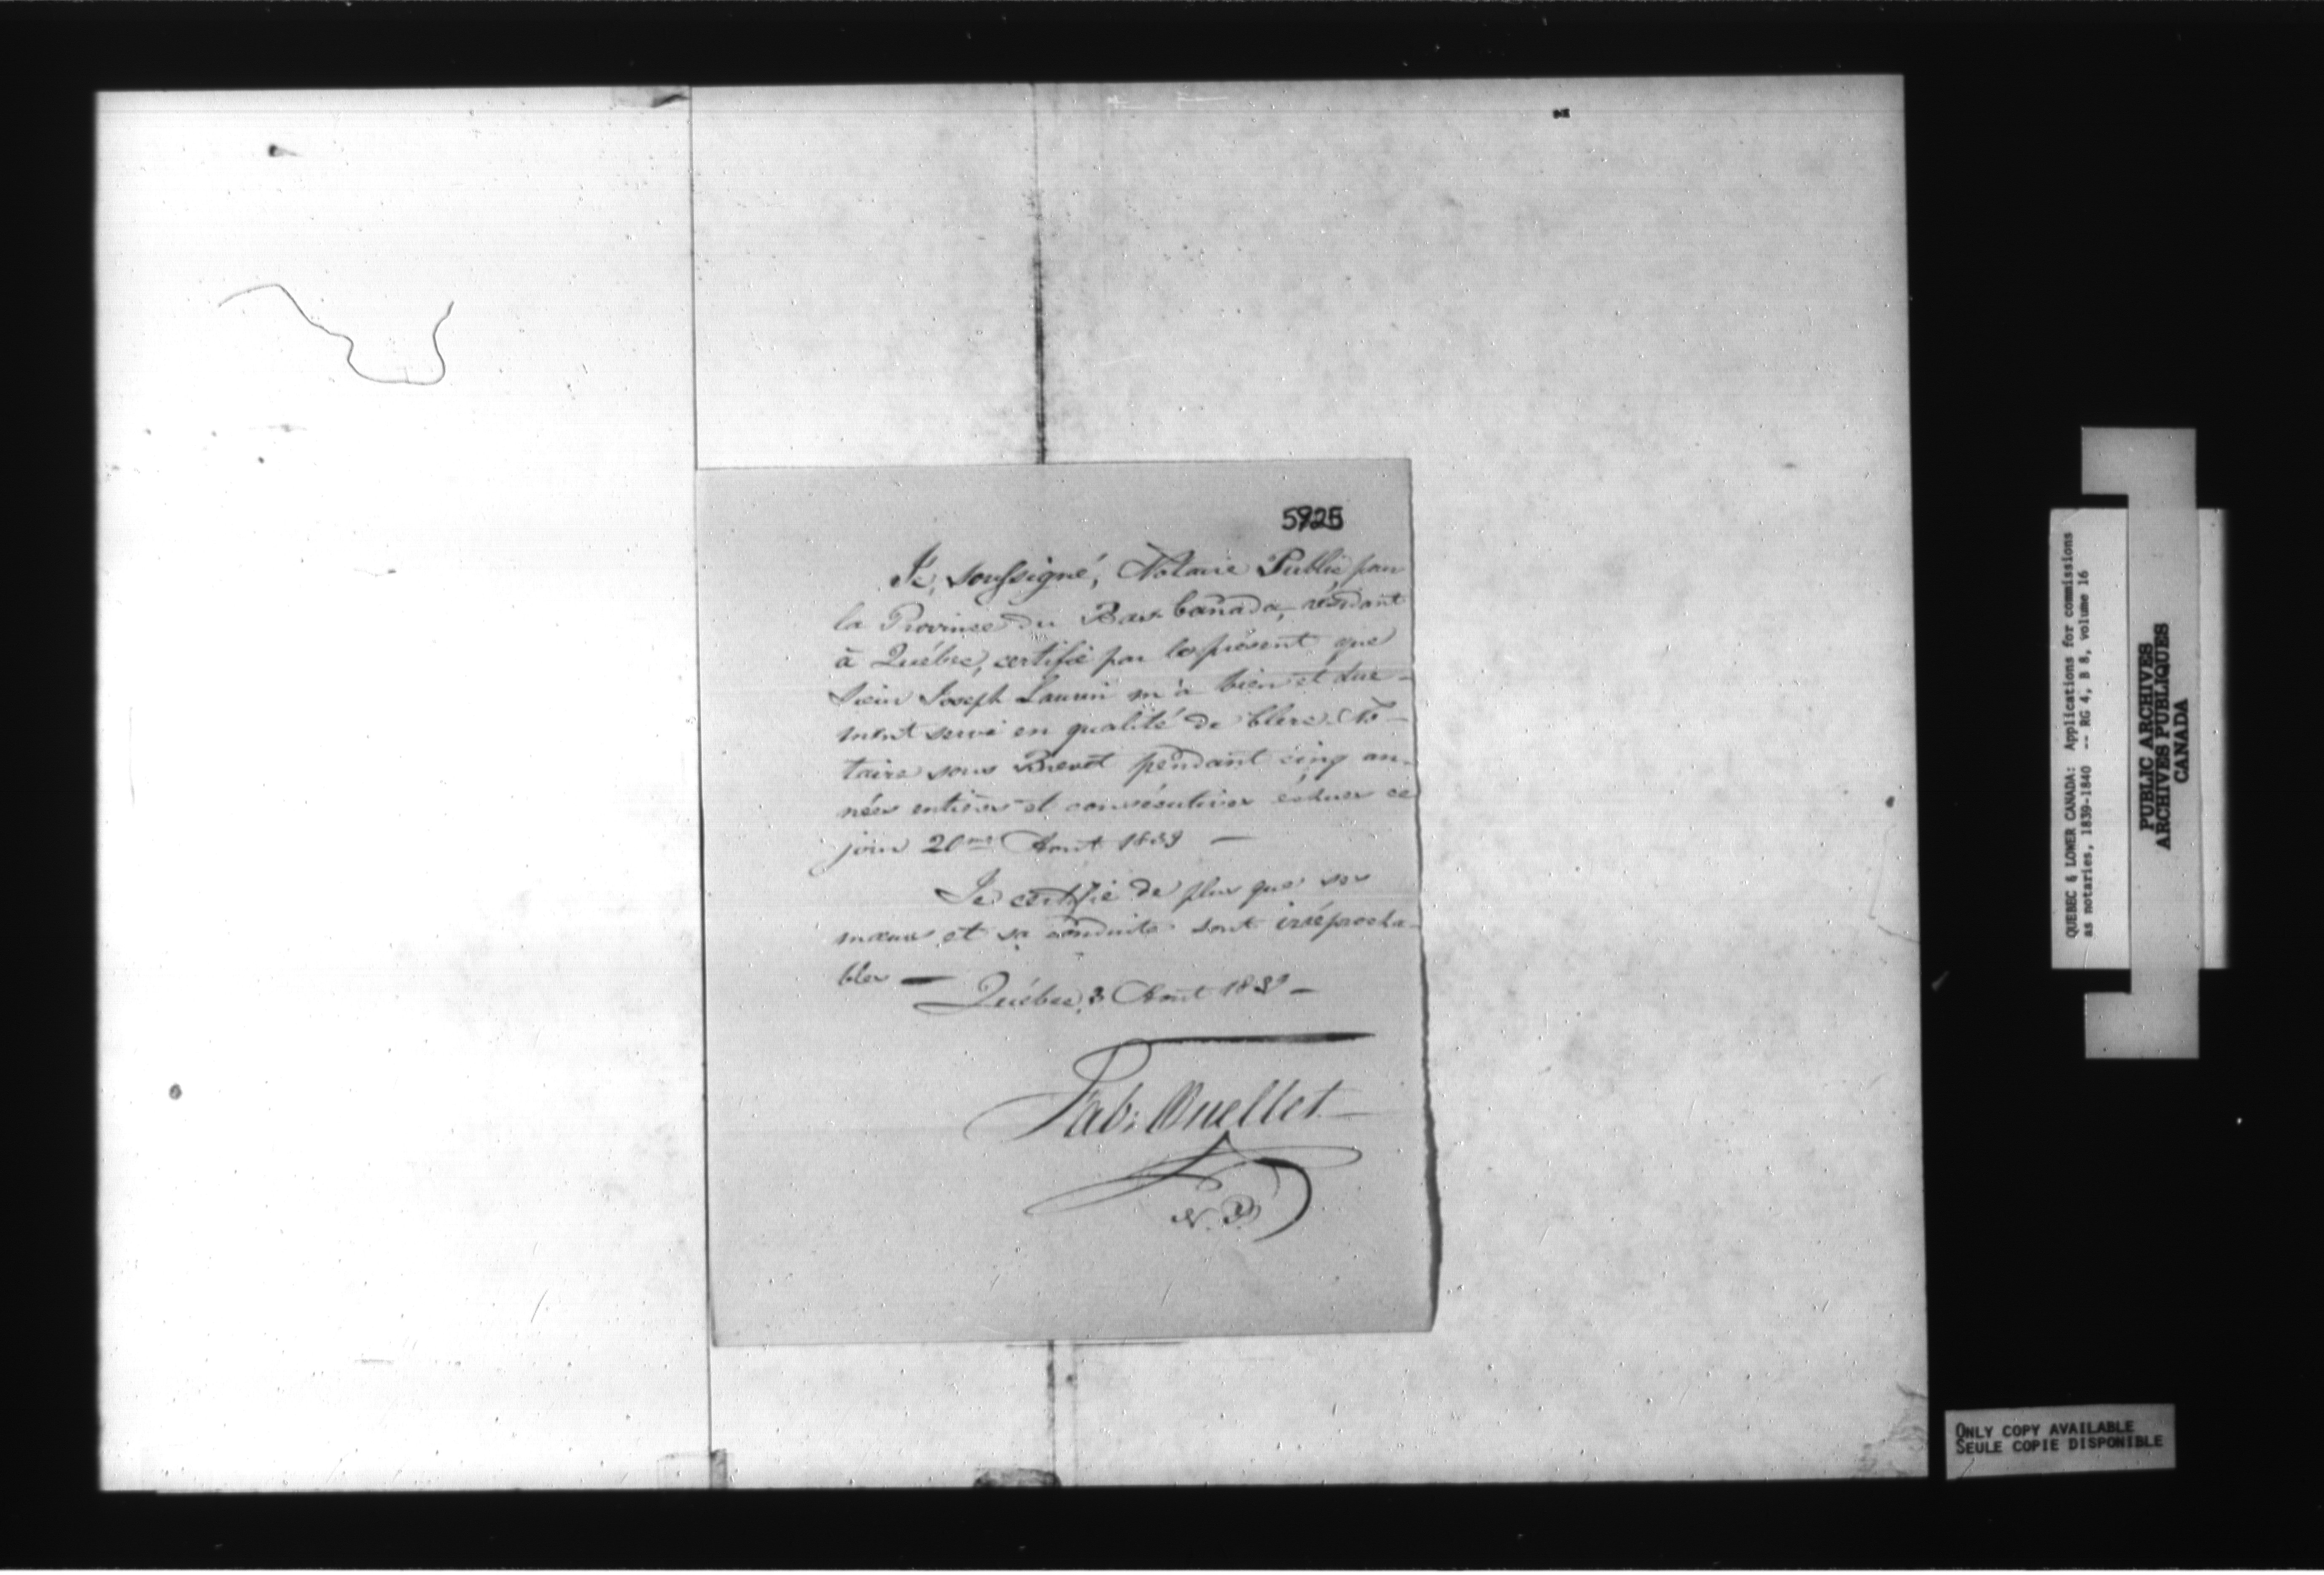 5925
Je, soussigné, Notaire Public pour
la Province du Bas-Canada, résidant
à Québec, certifie par les présent que
Sieur Joseph Laurin m'a bien et due-
ment servi en qualité de Clerc No-
taire sous Brevet pendant cinq an-
nées entières et consécutives échues ce
jour Aout 1839 —
Je certifie de plus que ses
mœurs et sa conduite sont irréprocha-
bles —
Québec, 3 Aout 1839 —
Fab: Ouellet
N. P.
QUEBEC & LOWER CANADA: Applications for commissions
as notaries, 1839-1840 -- RG 4, B 8, volume 16
PUBLIC ARCHIVES
ARCHIVES PUBLIQUES
CANADA
ONLY COPY AVAILABLE
SEULE COPIE DISPONIBLE